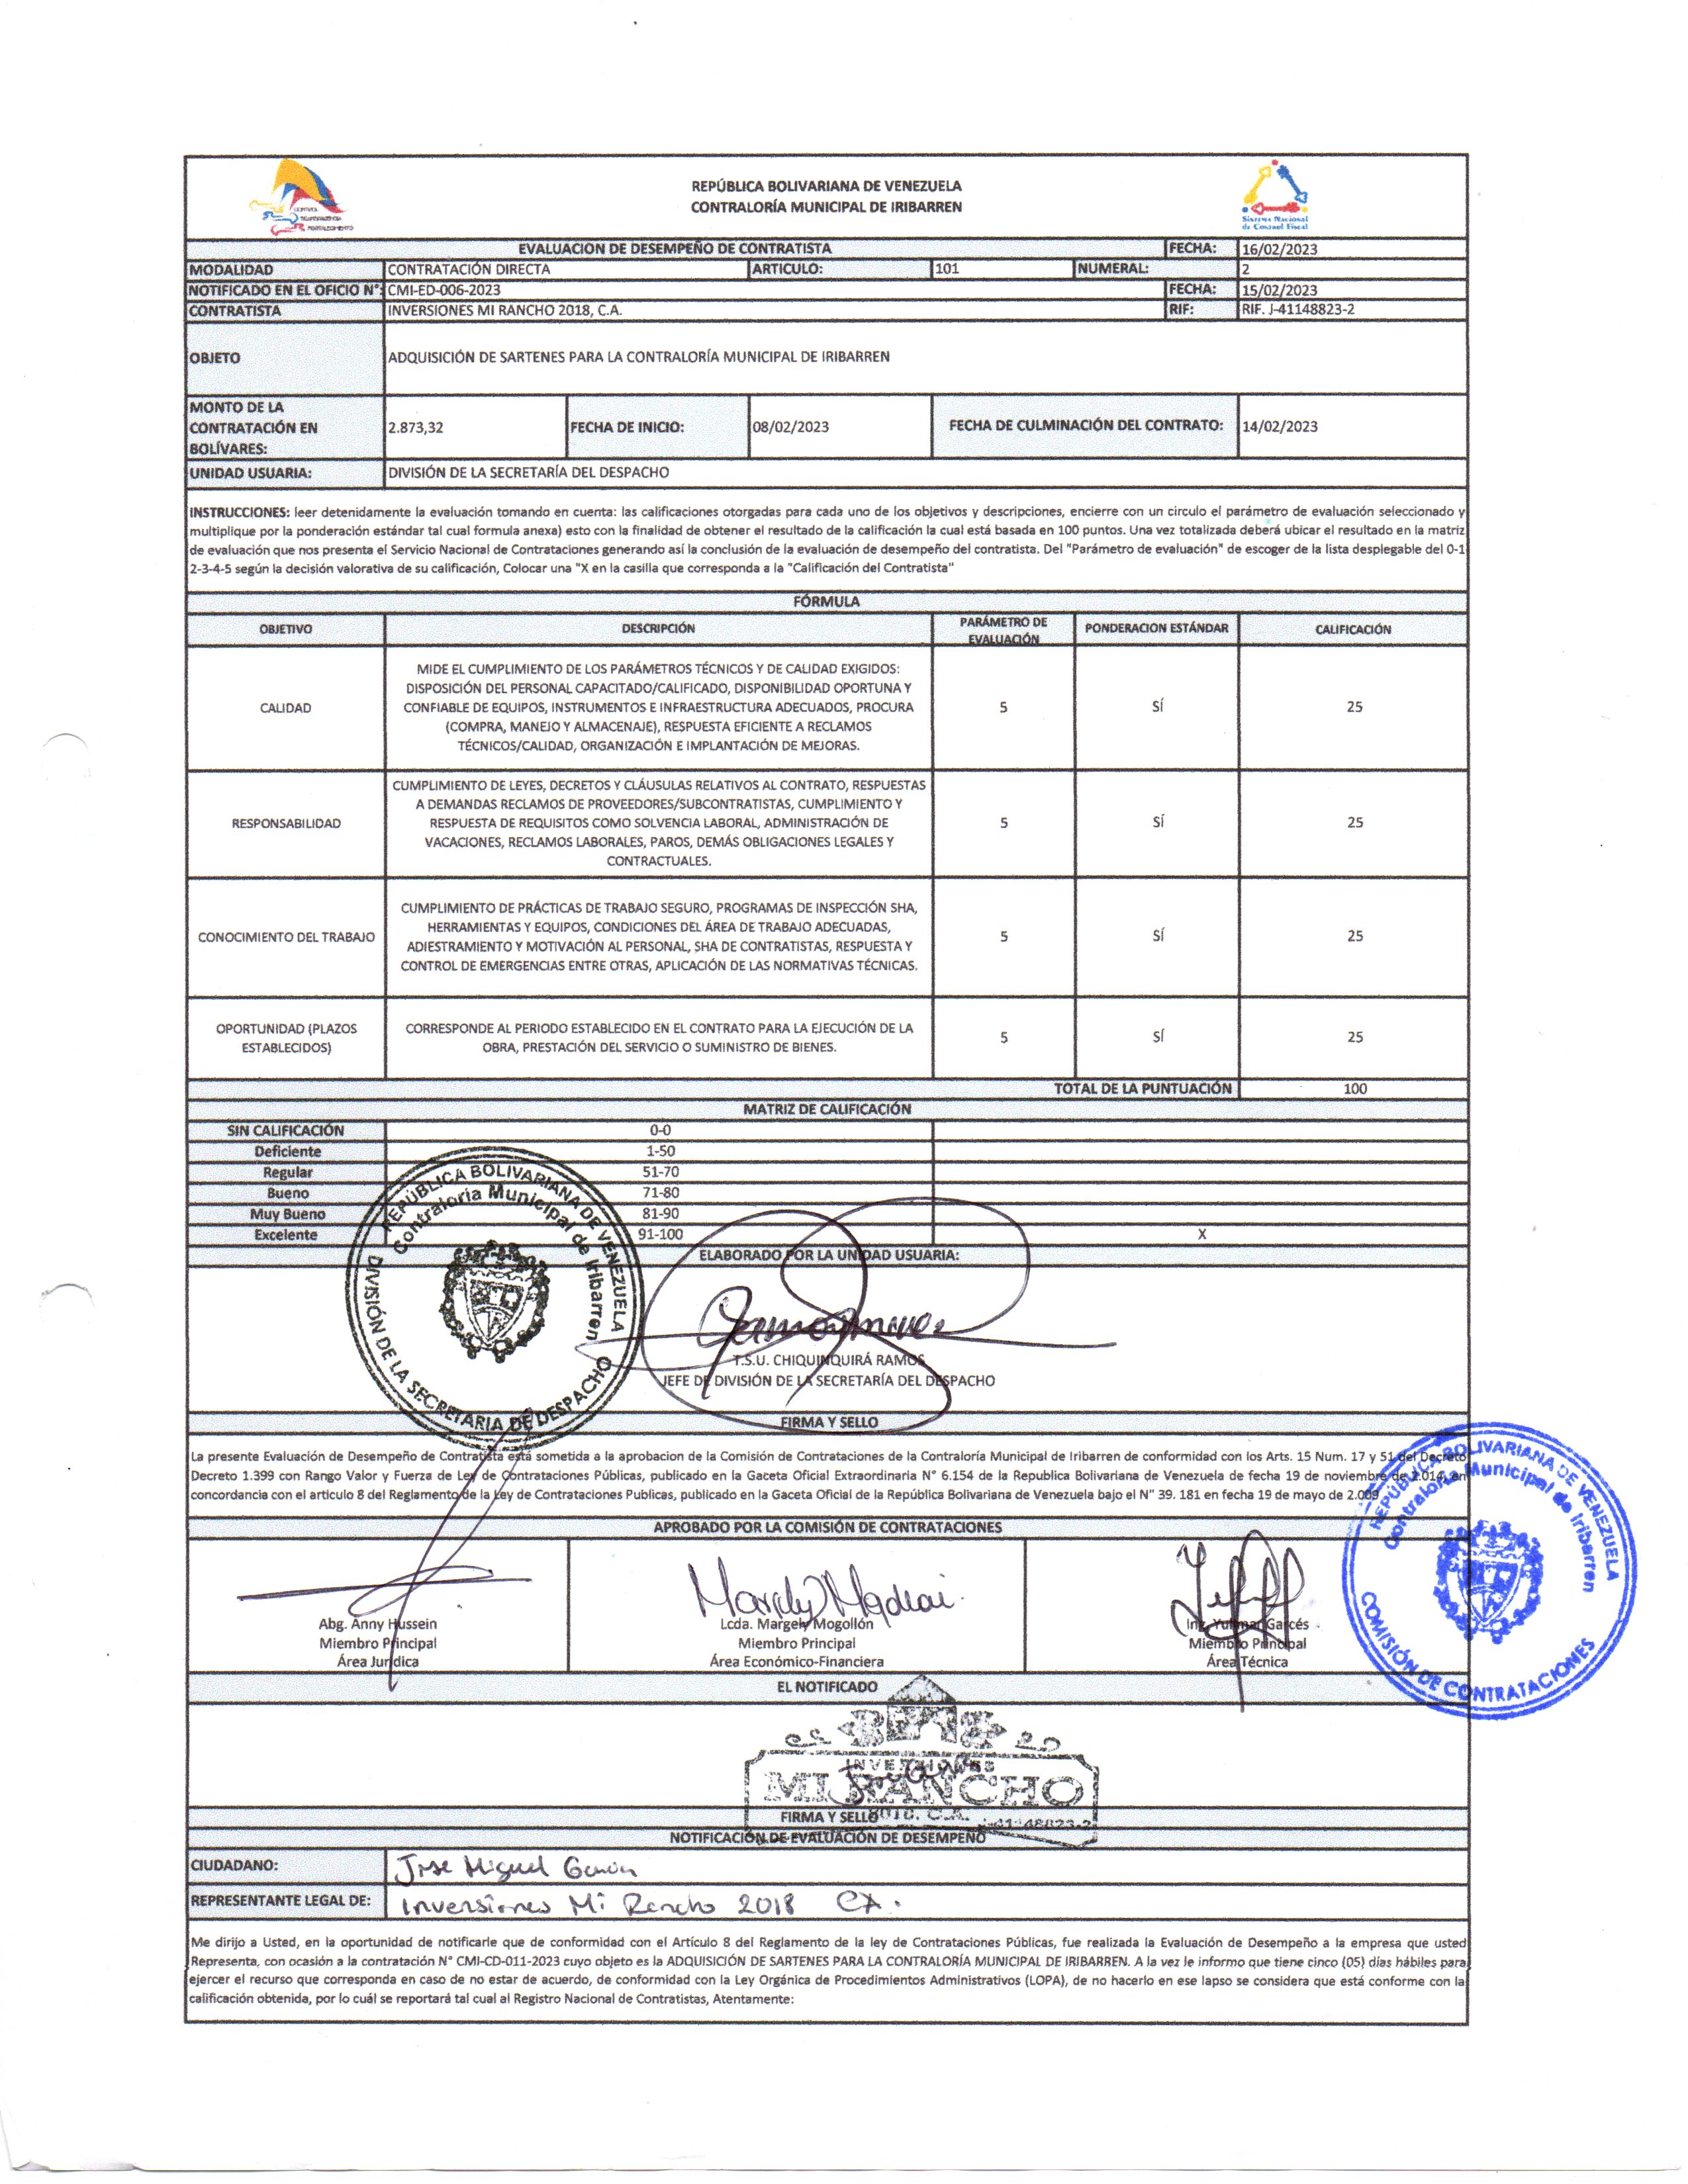 CONTROL
TRANSPARENCIA
FORTALECIMIENTO
REPÚBLICA BOLIVARIANA DE VENEZUELA
CONTRALORÍA MUNICIPAL DE IRIBARREN
Sistema Nacional
de Control Fiscal
EVALUACION DE DESEMPEÑO DE CONTRATISTA FECHA: 16/02/2023
MODALIDAD CONTRATACIÓN DIRECTA ARTICULO: 101 NUMERAL: 2
NOTIFICADO EN EL OFICIO N°: CMI-ED-006-2023 FECHA: 15/02/2023
CONTRATISTA INVERSIONES MI RANCHO 2018, C.A. RIF: RIF. J-41148823-2
OBJETO ADQUISICIÓN DE SARTENES PARA LA CONTRALORÍA MUNICIPAL DE IRIBARREN
MONTO DE LA
CONTRATACIÓN EN
BOLÍVARES:
2.873,32 FECHA DE INICIO: 08/02/2023 FECHA DE CULMINACIÓN DEL CONTRATO: 14/02/2023
UNIDAD USUARIA: DIVISIÓN DE LA SECRETARÍA DEL DESPACHO
INSTRUCCIONES: leer detenidamente la evaluación tomando en cuenta: las calificaciones otorgadas para cada uno de los objetivos y descripciones, encierre con un circulo el parámetro de evaluación seleccionado y
multiplique por la ponderación estándar tal cual formula anexa) esto con la finalidad de obtener el resultado de la calificación la cual está basada en 100 puntos. Una vez totalizada deberá ubicar el resultado en la matriz
de evaluación que nos presenta el Servicio Nacional de Contrataciones generando así la conclusión de la evaluación de desempeño del contratista. Del "Parámetro de evaluación" de escoger de la lista desplegable del 0-1
2-3-4-5 según la decisión valorativa de su calificación, Colocar una "X en la casilla que corresponda a la "Calificación del Contratista"
FÓRMULA
OBJETIVO DESCRIPCIÓN PARÁMETRO DE EVALUACIÓN PONDERACION ESTÁNDAR CALIFICACIÓN
MIDE EL CUMPLIMIENTO DE LOS PARÁMETROS TÉCNICOS Y DE CALIDAD EXIGIDOS:
DISPOSICIÓN DEL PERSONAL CAPACITADO/CALIFICADO, DISPONIBILIDAD OPORTUNA Y
CALIDAD CONFIABLE DE EQUIPOS, INSTRUMENTOS E INFRAESTRUCTURA ADECUADOS, PROCURA 5 SÍ 25
(COMPRA, MANEJO Y ALMACENAJE), RESPUESTA EFICIENTE A RECLAMOS
TÉCNICOS/CALIDAD, ORGANIZACIÓN E IMPLANTACIÓN DE MEJORAS.
CUMPLIMIENTO DE LEYES, DECRETOS Y CLÁUSULAS RELATIVOS AL CONTRATO, RESPUESTAS
A DEMANDAS RECLAMOS DE PROVEEDORES/SUBCONTRATISTAS, CUMPLIMIENTO Y
RESPONSABILIDAD RESPUESTA DE REQUISITOS COMO SOLVENCIA LABORAL, ADMINISTRACIÓN DE 5 SÍ 25
VACACIONES, RECLAMOS LABORALES, PAROS, DEMÁS OBLIGACIONES LEGALES Y
CONTRACTUALES.
CUMPLIMIENTO DE PRÁCTICAS DE TRABAJO SEGURO, PROGRAMAS DE INSPECCIÓN SHA,
HERRAMIENTAS Y EQUIPOS, CONDICIONES DEL ÁREA DE TRABAJO ADECUADAS,
CONOCIMIENTO DEL TRABAJO ADIESTRAMIENTO Y MOTIVACIÓN AL PERSONAL, SHA DE CONTRATISTAS, RESPUESTA Y 5 SÍ 25
CONTROL DE EMERGENCIAS ENTRE OTRAS, APLICACIÓN DE LAS NORMATIVAS TÉCNICAS.
OPORTUNIDAD (PLAZOS
ESTABLECIDOS)
CORRESPONDE AL PERIODO ESTABLECIDO EN EL CONTRATO PARA LA EJECUCIÓN DE LA
OBRA, PRESTACIÓN DEL SERVICIO O SUMINISTRO DE BIENES.
5 SÍ 25
TOTAL DE LA PUNTUACIÓN 100
MATRIZ DE CALIFICACIÓN
SIN CALIFICACIÓN 0-0
Deficiente 1-50
Regular 51-70
Bueno 71-80
Muy Bueno 81-90
Excelente 91-100 X
REPÚBLICA BOLIVARIANA DE VENEZUELA
Contraloría Municipal de Iribarren
DIVISIÓN DE LA SECRETARIA DE DESPACHO
ELABORADO POR LA UNIDAD USUARIA:
T.S.U. CHIQUINQUIRÁ RAMOS
JEFE DE DIVISIÓN DE LA SECRETARÍA DEL DESPACHO
FIRMA Y SELLO
La presente Evaluación de Desempeño de Contratista está sometida a la aprobacion de la Comisión de Contrataciones de la Contraloría Municipal de Iribarren de conformidad con los Arts. 15 Num. 17 y 51 del Decreto
Decreto 1.399 con Rango Valor y Fuerza de Ley de Contrataciones Públicas, publicado en la Gaceta Oficial Extraordinaria N° 6.154 de la Republica Bolivariana de Venezuela de fecha 19 de noviembre de 2.014, en
concordancia con el articulo 8 del Reglamento de la Ley de Contrataciones Publicas, publicado en la Gaceta Oficial de la República Bolivariana de Venezuela bajo el N° 39. 181 en fecha 19 de mayo de 2.009
REPÚBLICA BOLIVARIANA DE VENEZUELA
Contraloría Municipal de Iribarren
COMISIÓN DE CONTRATACIONES
APROBADO POR LA COMISIÓN DE CONTRATACIONES
Abg. Anny Hussein Lcda. Margely Mogollón Ing. Yulimar Garcés
Miembro Principal Miembro Principal Miembro Principal
Área Jurídica Área Económico-Financiera Área Técnica
EL NOTIFICADO
INVERSIONES
MI RANCHO
2018. C.A.
J-41148823-2
FIRMA Y SELLO
NOTIFICACIÓN DE EVALUACIÓN DE DESEMPEÑO
CIUDADANO: Jose Miguel
REPRESENTANTE LEGAL DE: Inversiones Mi Rancho 2018 CA.
Me dirijo a Usted, en la oportunidad de notificarle que de conformidad con el Artículo 8 del Reglamento de la ley de Contrataciones Públicas, fue realizada la Evaluación de Desempeño a la empresa que usted
Representa, con ocasión a la contratación N° CMI-CD-011-2023 cuyo objeto es la ADQUISICIÓN DE SARTENES PARA LA CONTRALORÍA MUNICIPAL DE IRIBARREN. A la vez le informo que tiene cinco (05) días hábiles para
ejercer el recurso que corresponda en caso de no estar de acuerdo, de conformidad con la Ley Orgánica de Procedimientos Administrativos (LOPA), de no hacerlo en ese lapso se considera que está conforme con la
calificación obtenida, por lo cuál se reportará tal cual al Registro Nacional de Contratistas, Atentamente: